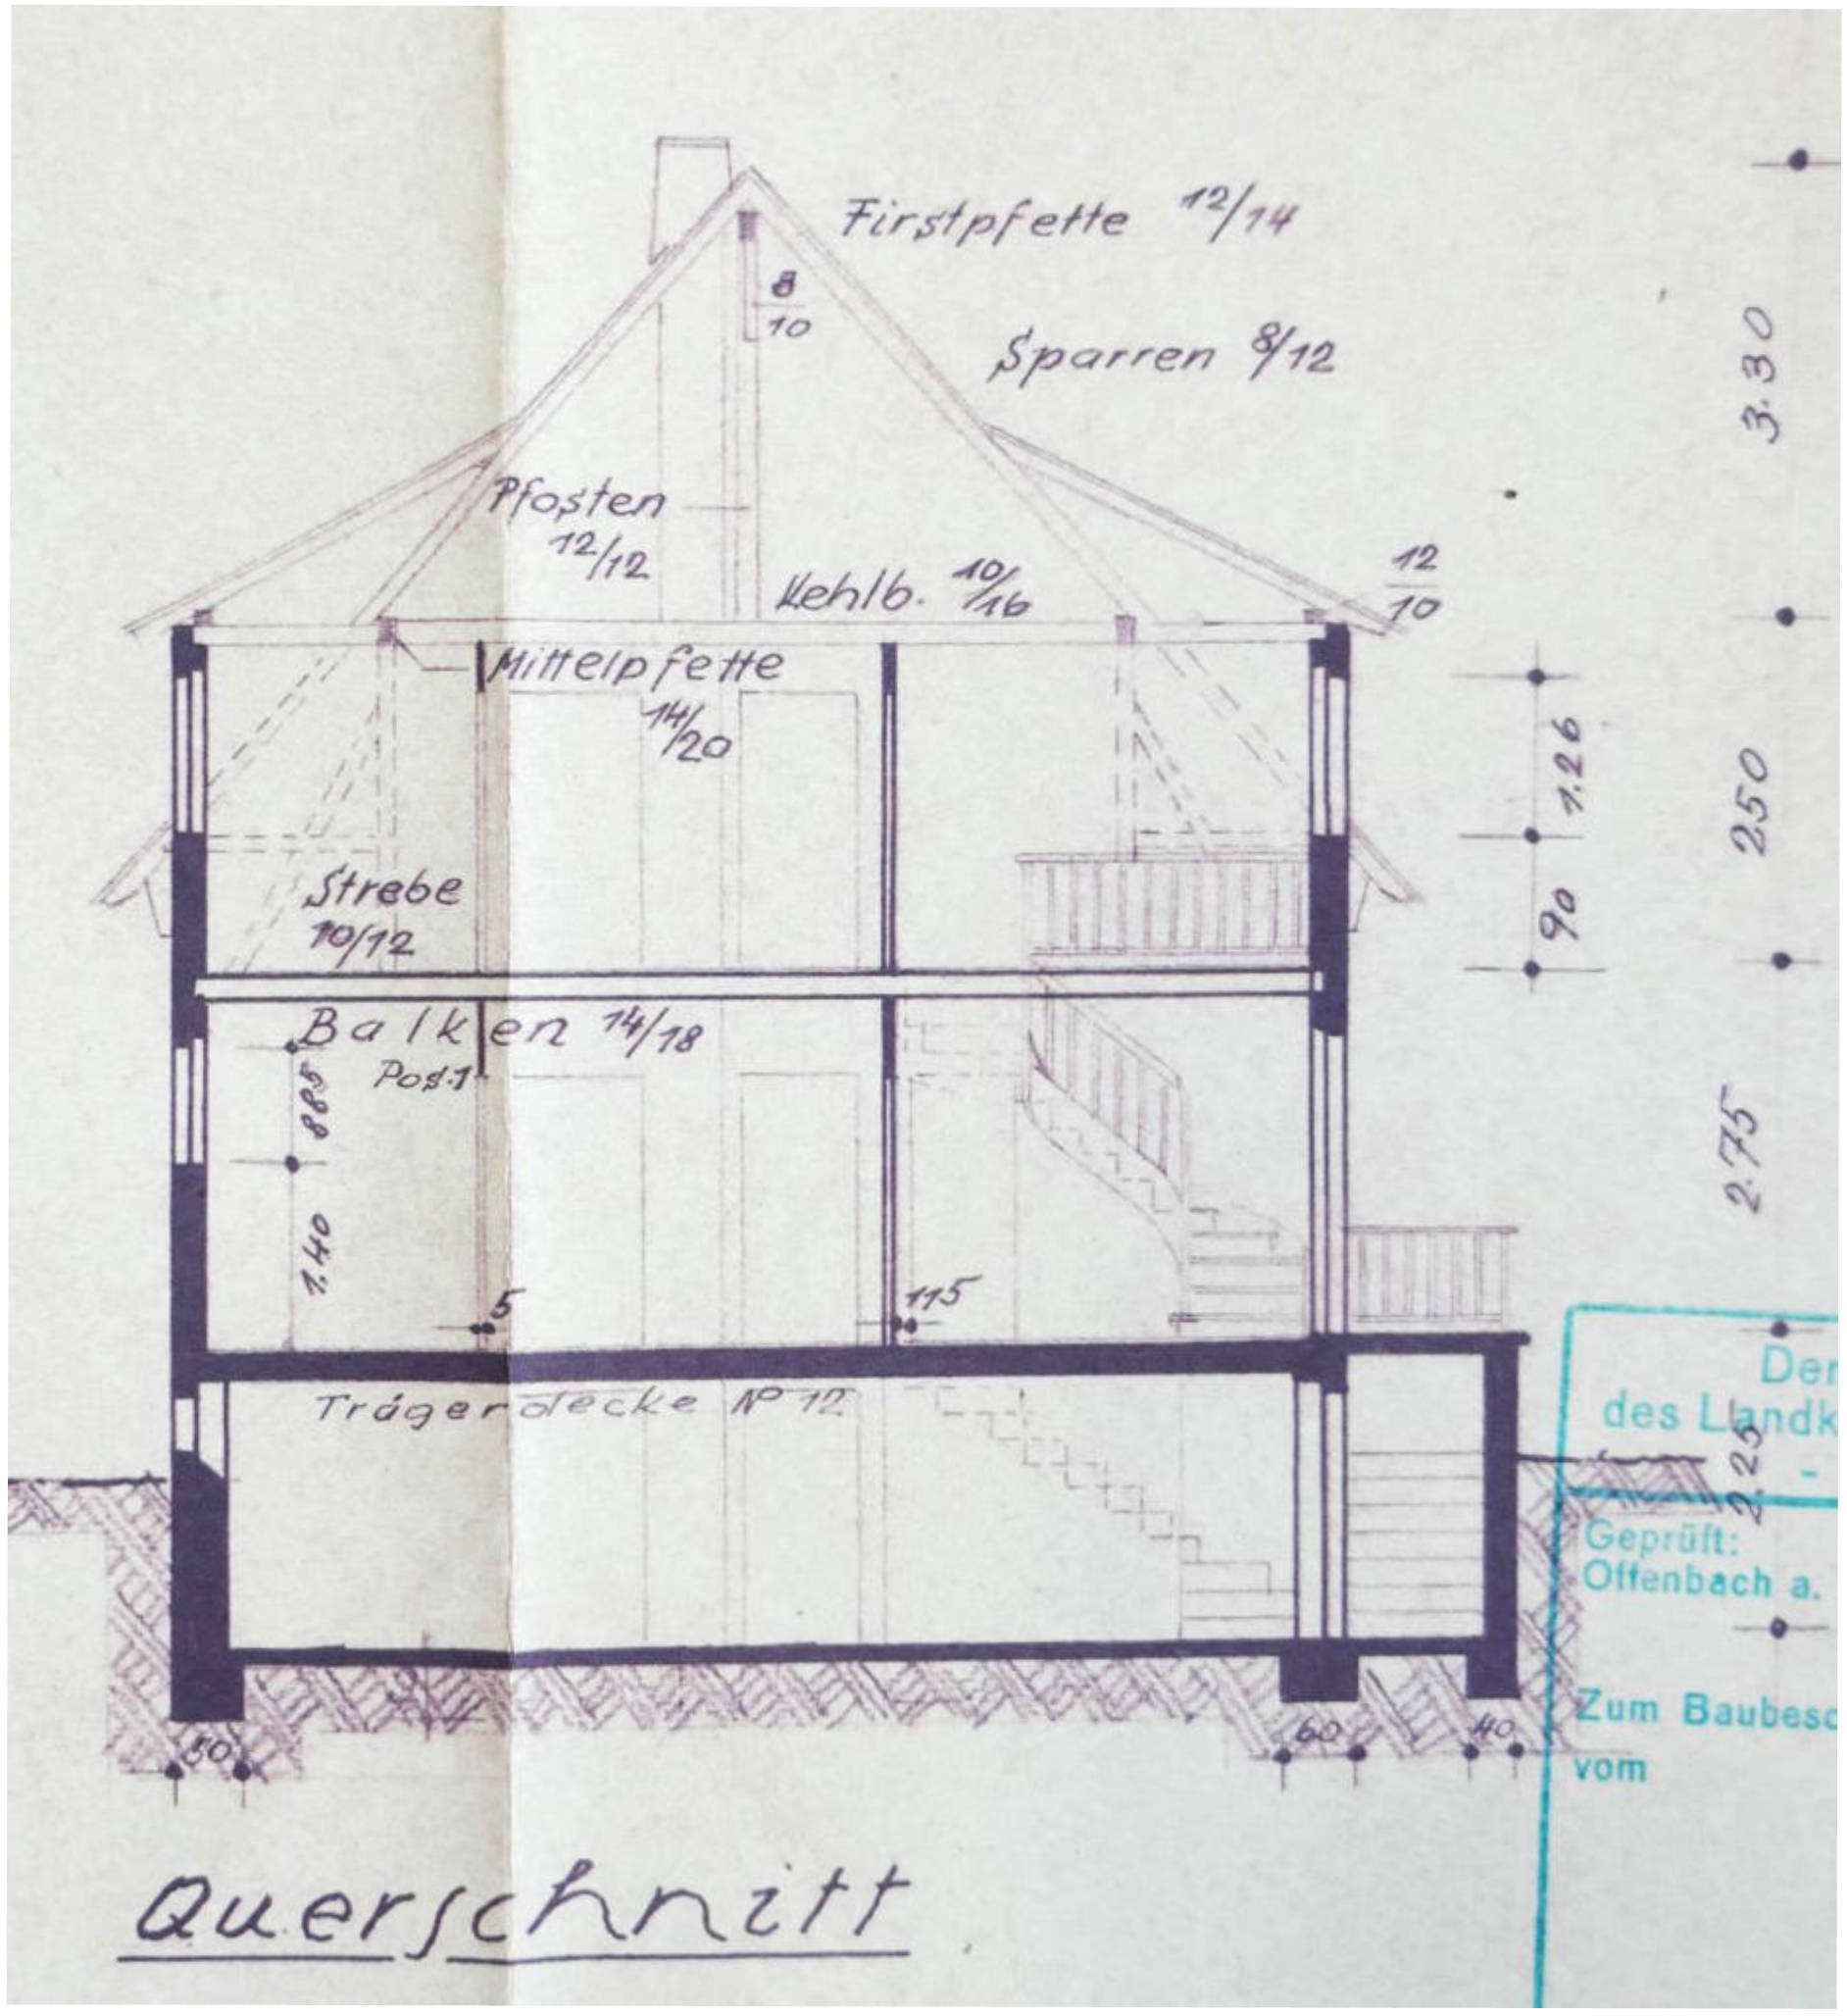 Firstpfette 12/14
8
10
Sparren 8/12
3.30
Pfosten
12/12
Kehlb. 10/16
12
10
Mittelpfette
14/20
1.26
250
90
Strebe
10/12
Balken 14/18
Pos.1
885
1.40
2.75
5
115
Trägerdecke № 12
2.25
Der
des Landk
-
Geprüft:
Offenbach a.
Zum Baubesc
vom
50
60
40
Querschnitt